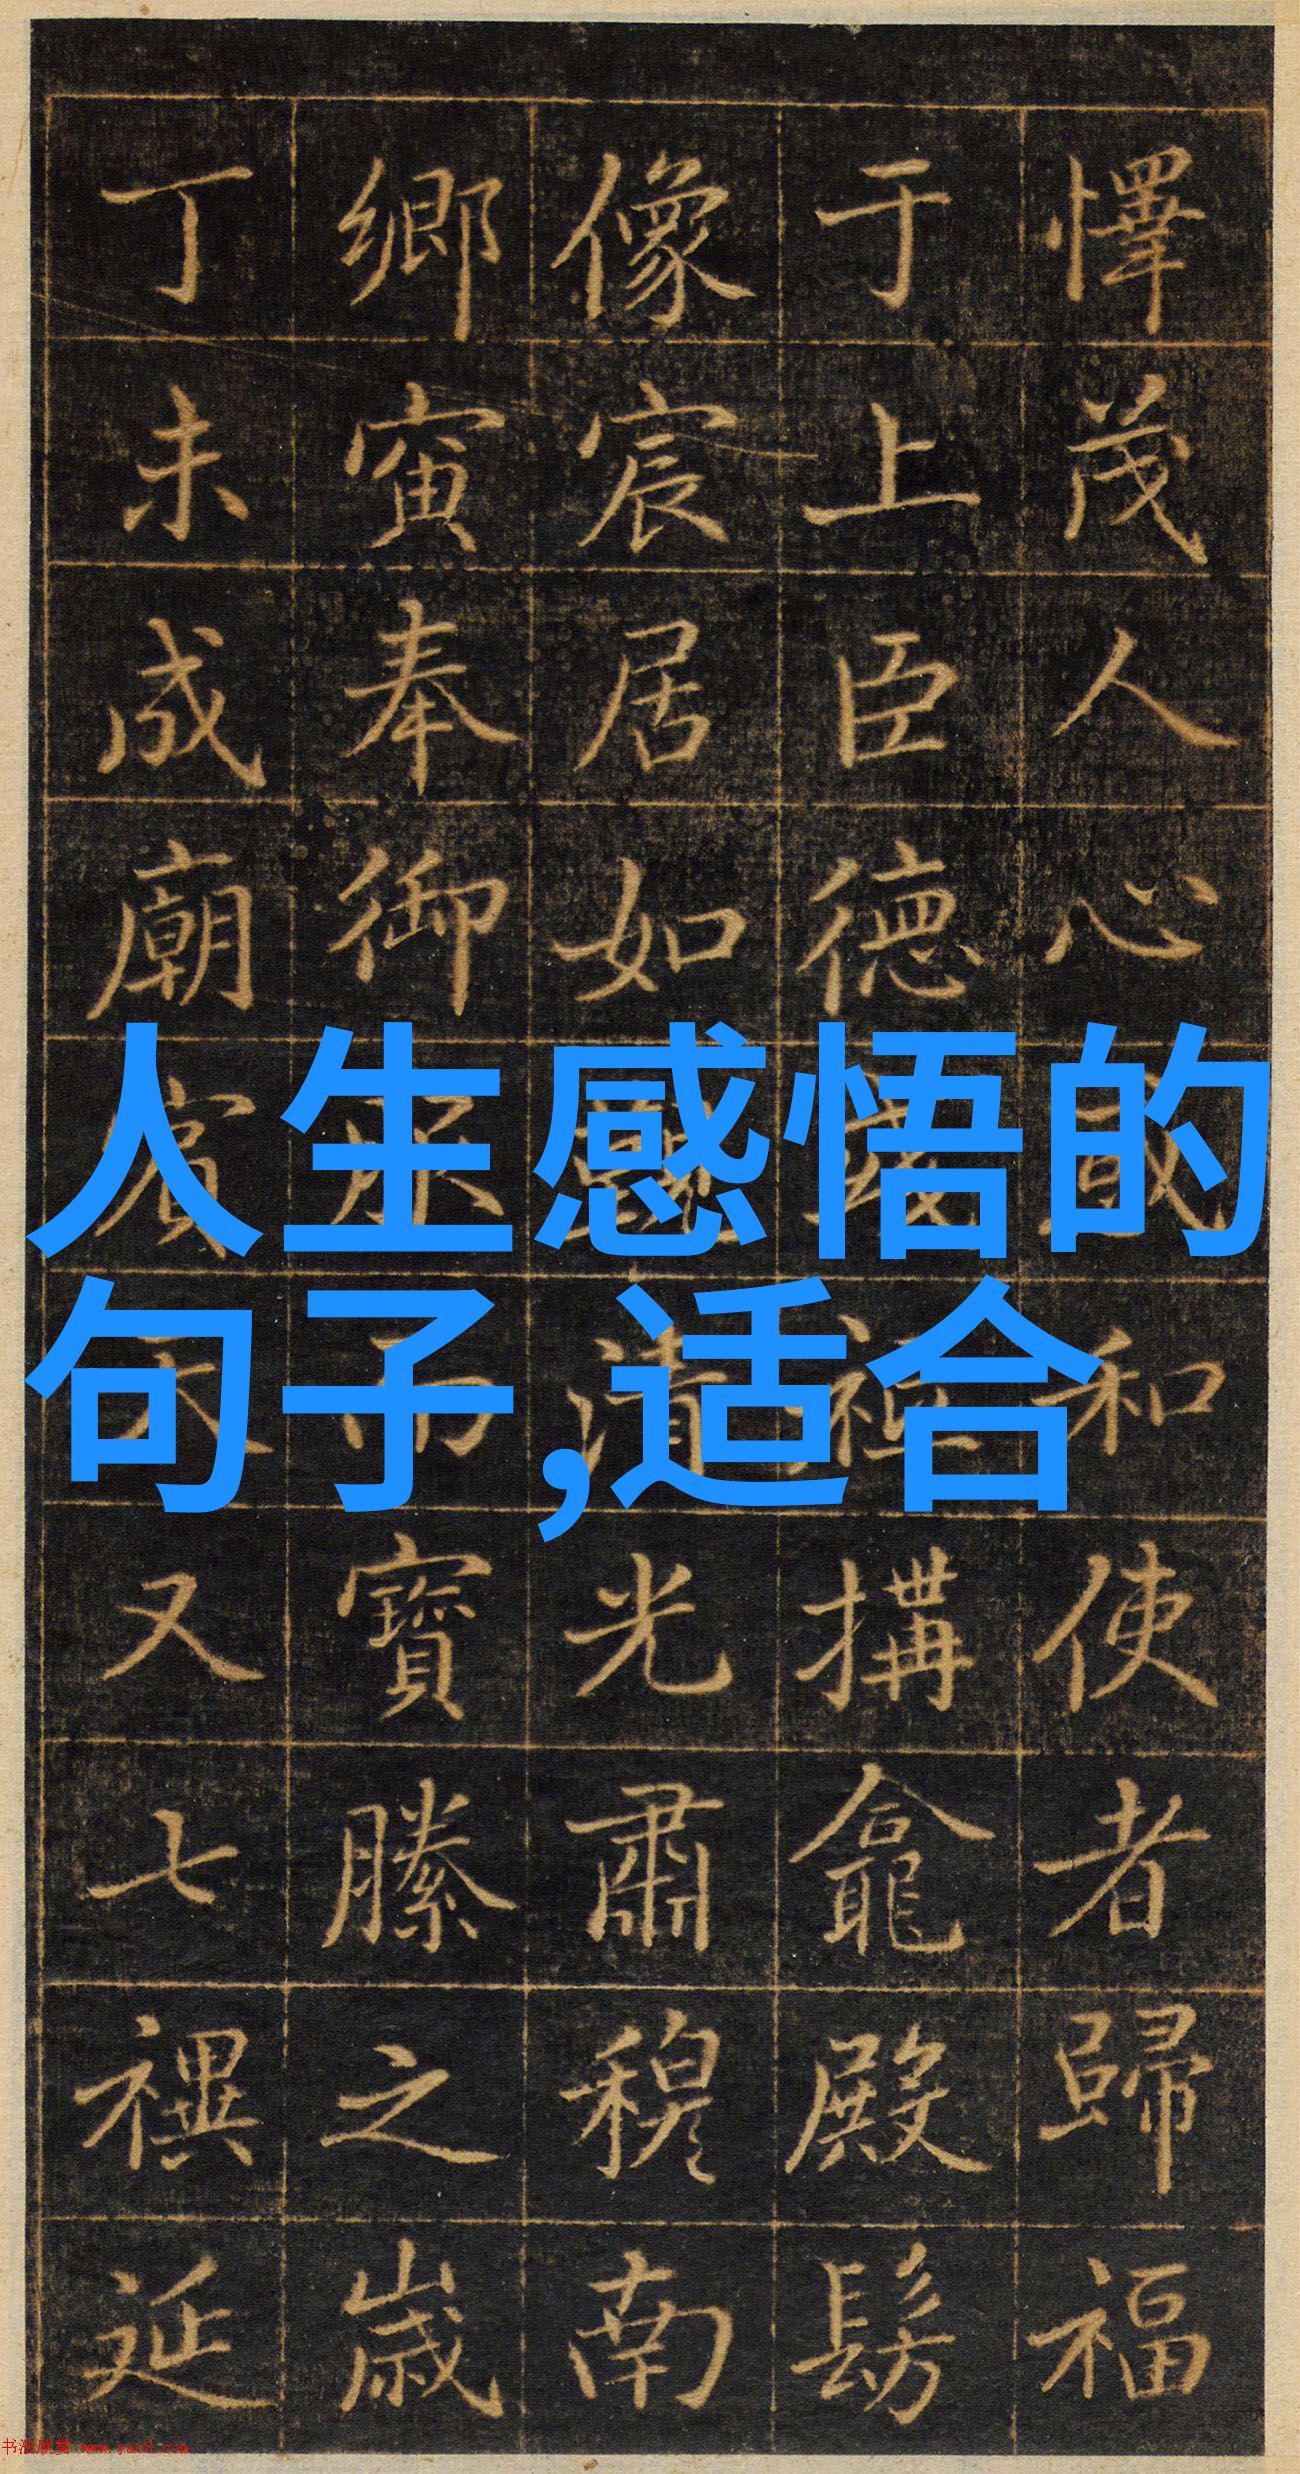 懌茂人心咸和使者歸福
于上臣德或祉搆龕殿髣
像宸居如
清光肅穆南
鄉寅奉御
而寶滕之歲
丁未成廟
賓天又七禩延
人生感悟的
句子,适合
书法欣赏 www.yac8.com